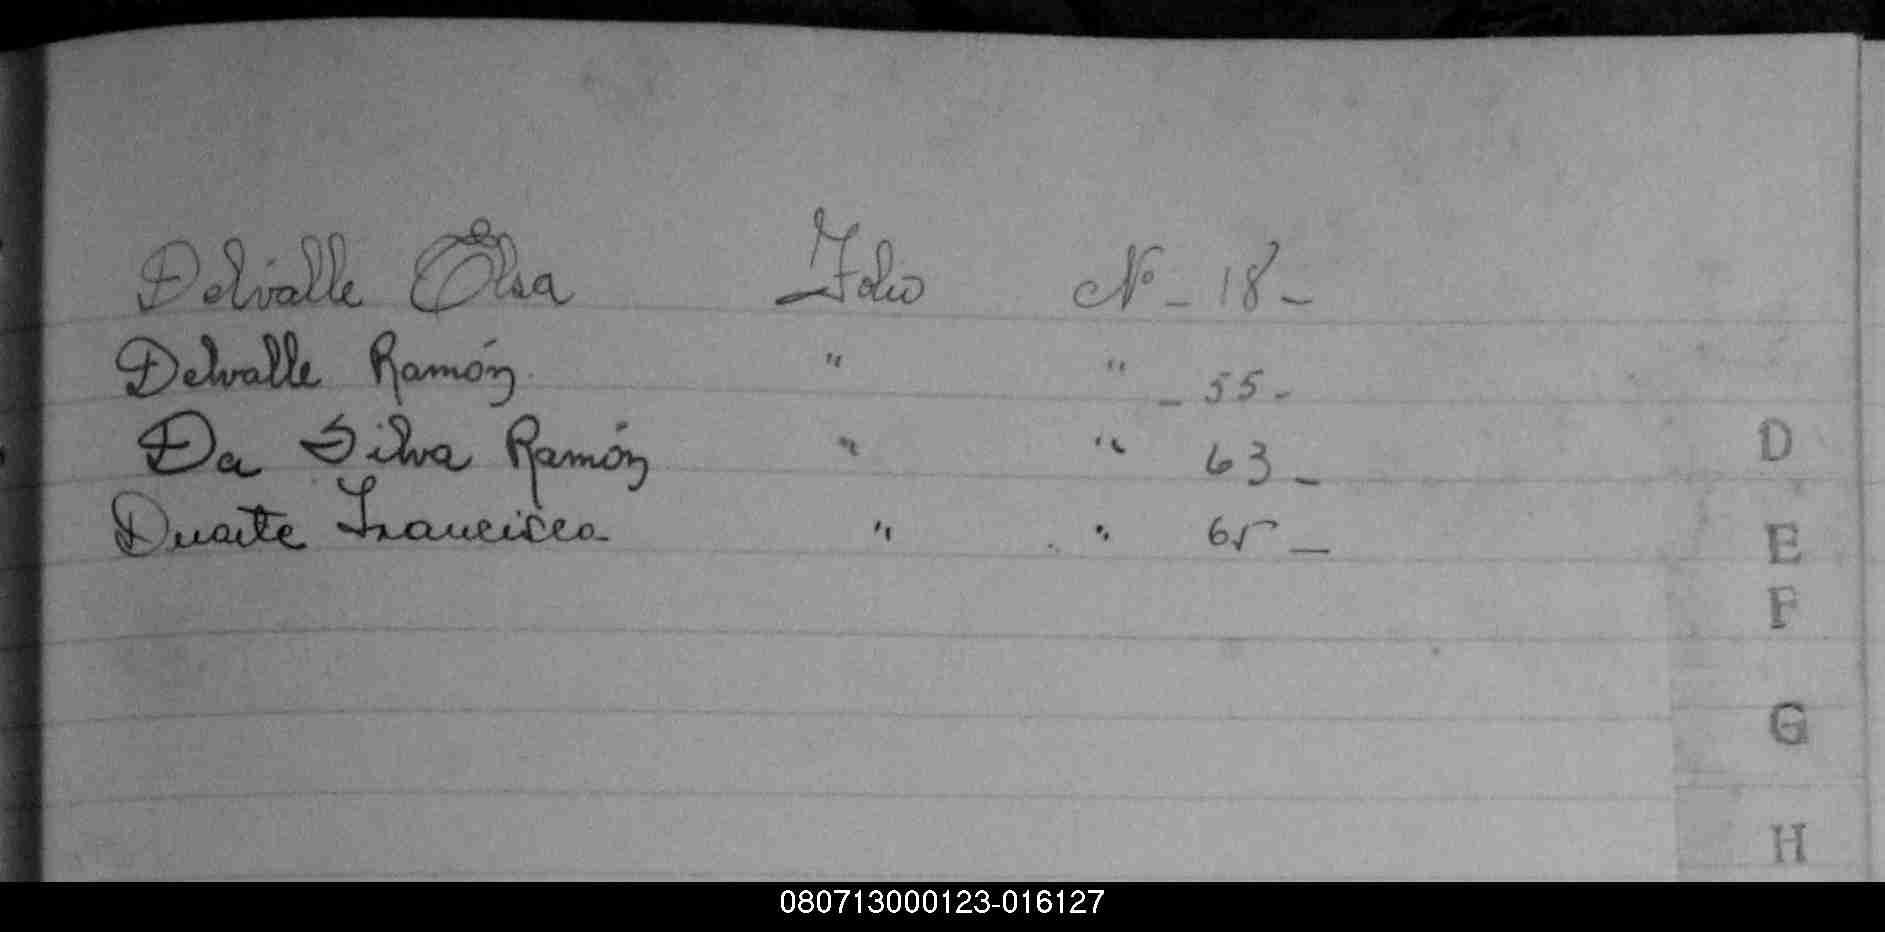 Delvalle Elsa Folio Nº - 18 -
Delvalle Ramón " " - 55 -
Da Silva Ramón " " 63 -
Duarte Francisca " " 65 -
D
E
F
G
H
080713000123-016127